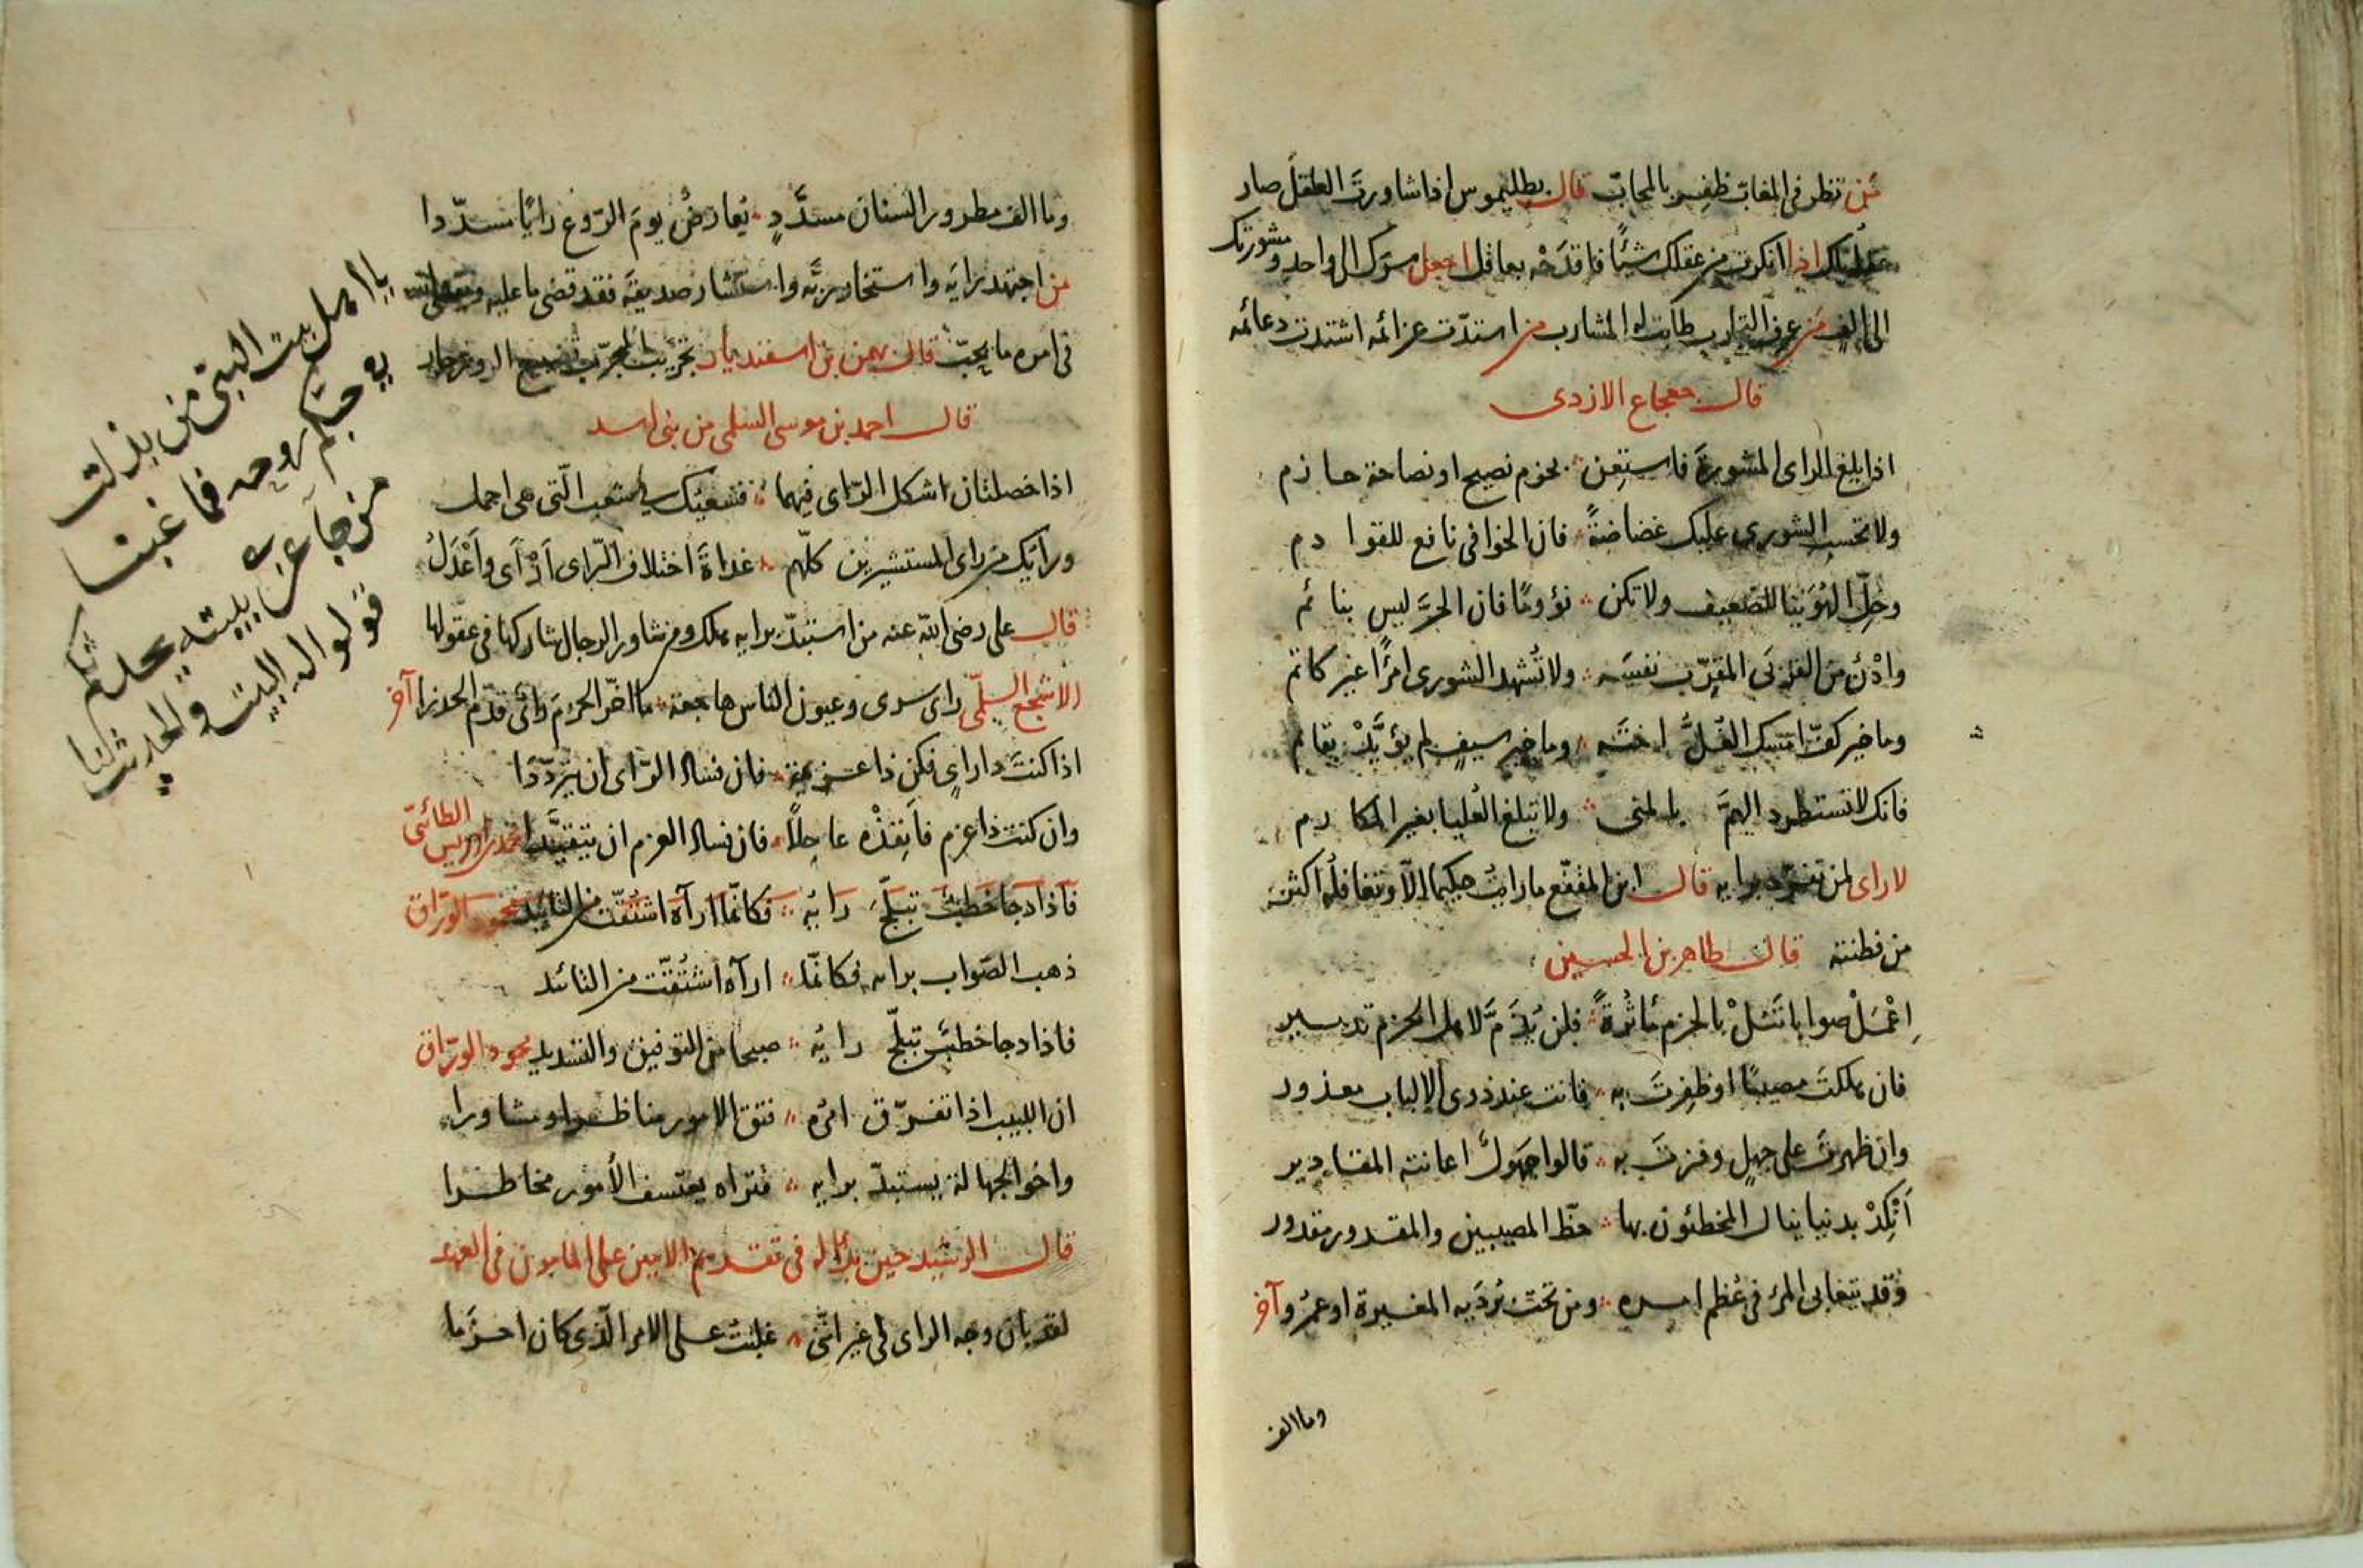 من نظر فى المغابّ ظفر بالمحابّ قال بطليموس اذا شاورت العاقل صار
عقله لك اذا انكرت من عقلك شيئًا فاقدَحْه بعاقل اجعل سرّك الى واحد ومشورتك
الى الف من عرف التجارب طابت له المشارب من استدّت عزائمه اشتدت دعائمه
قال جعجاع الازدى
اذا بلغ الراى المشورةَ فاستعِن ؞ بحزم نصيح او نصاحة حازم
ولا تحسب الشورى عليك غضاضةً ؞ فان الخوافى نافع للقوادم
وخلِّ الهُوَينا للضعيف ولا تكن ؞ نؤومًا فان الحرَّ ليس بنائم
وادْنُ من القربَى المقرّب نفسَه ؞ ولا تُشهد الشورى امرًأ غير كاتم
وما خير كفّ امسك الغُلُّ اختَه ؞ وما خير سيفٍ لم يؤيَّدْ بقائم
فانك لا تستطرد الهمَّ بالمنى ؞ ولا تبلغ العُليا بغير المكارم
لا راى لمن تفرّد برايه قال ابن المقفّع ما رايتُ حكيما الّا وتغافله اكثر
من فطنته قال طاهر بن الحسين
اِعْمَلْ صوابا تَنَلْ بالحزم مَأثُرةً ؞ فلن يُذَمَّ لاهل الحزم تدبير
فان هلكتَ مصيبًا او ظفِرتَ به ؞ فانت عند ذوى الالباب معذور
وان ظهرتَ على جهلٍ وفزتَ به ؞ قالوا جهَولٌ اعانته المقادير
اَنْكِدْ بدنيا ينال المخطئون بها ؞ حظّ المصيبين والمقدور مقدور
وقد يتغابى المرء فى عُظم امره ؞ ومن تحت بُردَيه المغيرة او عمرو آخر
وما الف
وما الف مطرور السنان مسدَّدٍ ؞ يُعارضُ يومَ الرّوع رايًا مسدّدا
من اجتهد رايَه واستخار ربَّه واستشار صديقَه فقد قضى ما عليه ويقضى الله
فى امره ما يحبّ قال بهمن بن اسفنديار تجريب المجرّب تضييع الروزجار
قال احمد بن موسى السلمى من بنى اسد
اذا خصلتان اشكل الرّاى فيهما ؞ فنفسَك استعب الّتى هى اجمل
ورأيَك من راى المستشيرين كلّهم ؞ غداةَ اختلاف الرّاى اَرْآى واَعْدَلُ
قال على رضى الله عنه من استبدّ برايه هلك ومن شاور الرجال شاركها فى عقولها
الاشجع السلمّى راى سرى وعيون الناس هاجعة ؞ ما اخّر الحزمَ رائى قدّم الحذرا آخر
اذا كنتَ ذا راىٍ فكن ذا عزيمة ؞ فان فساد الرّاى ان يتردّدَا
وان كنتَ ذا عزمٍ فاَنفِذْه عاجلًا ؞ فان فساد العزم ان يتقيَّدا محمد بن ادريس الطائىّ
فاذا دجا خطبٌ تبلّجَ رايُه ؞ فكانّما ارآه اشتُقّت من التائيد محمود الورّاق
ذهب الصّواب برايه فكانّما ؞ ارآه اشتُقّت من التائيد
فاذا دجا خطبٌ تبلّج رايُه ؞ صبحا من التوفيق والتسديد محمود الورّاق
ان اللبيب اذا تفرّق امره ؞ فتق الامور مناظرا ومشاورا
واخو الجهالة يستبدّ برايه ؞ فتراه يعتسف الأمور مخاطرا
قال الرشيد حين بدا له فى تقديم الامين على المامون فى العهد
لقد بان وجه الراى لى غير انّنى ؞ غلبتُ على الامر الّذى كان احزَما
يا اهل بيت النبى من بذلت
فى حبّكم روحه فما غبنا
من جآء عن بيته يحدثكم
قولوا له البيت والحديث لنا